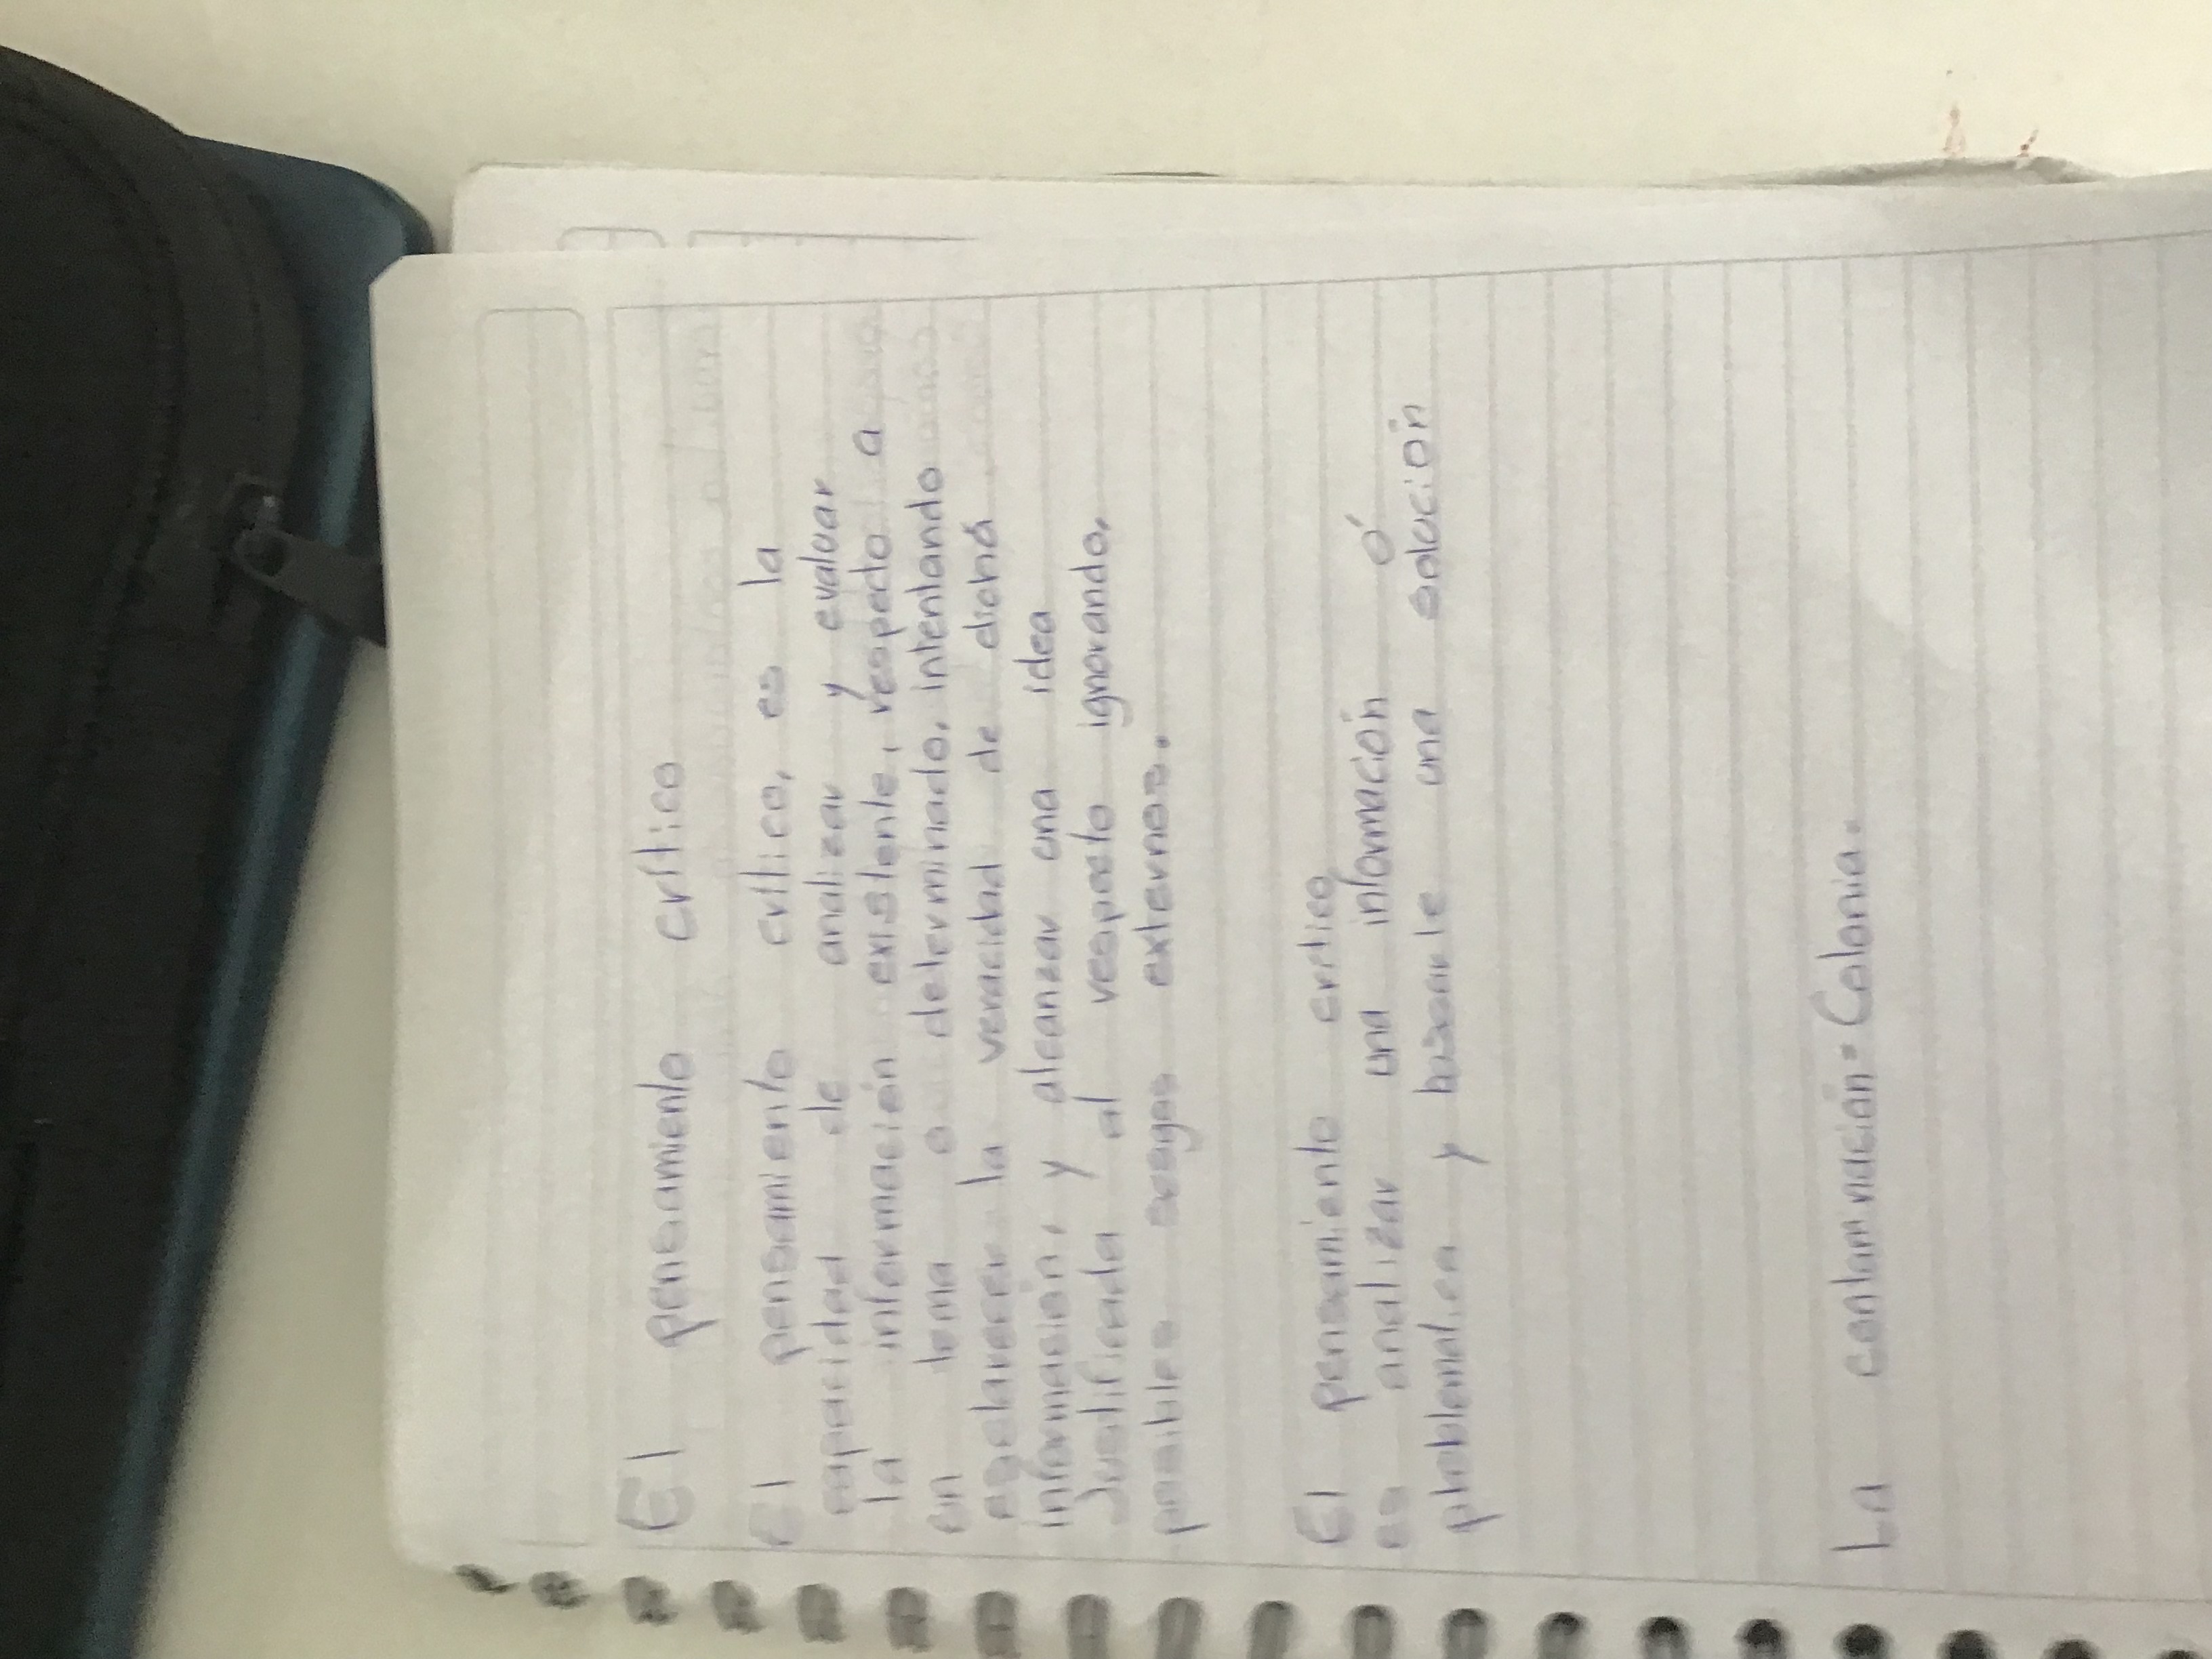 El pensamiento crítico
El pensamiento crítico, es la
capacidad de analizar y evaluar
la información existente, respecto a
un tema o determinado, intentando
esclarecer la veracidad de dicha
información, y alcanzar una idea
Justificada y al respecto ignorando,
posibles sesgos externos.
El pensamiento crítico
es analizar una información ó
problematica y buscarle una solución
La contaminación = Colonia.